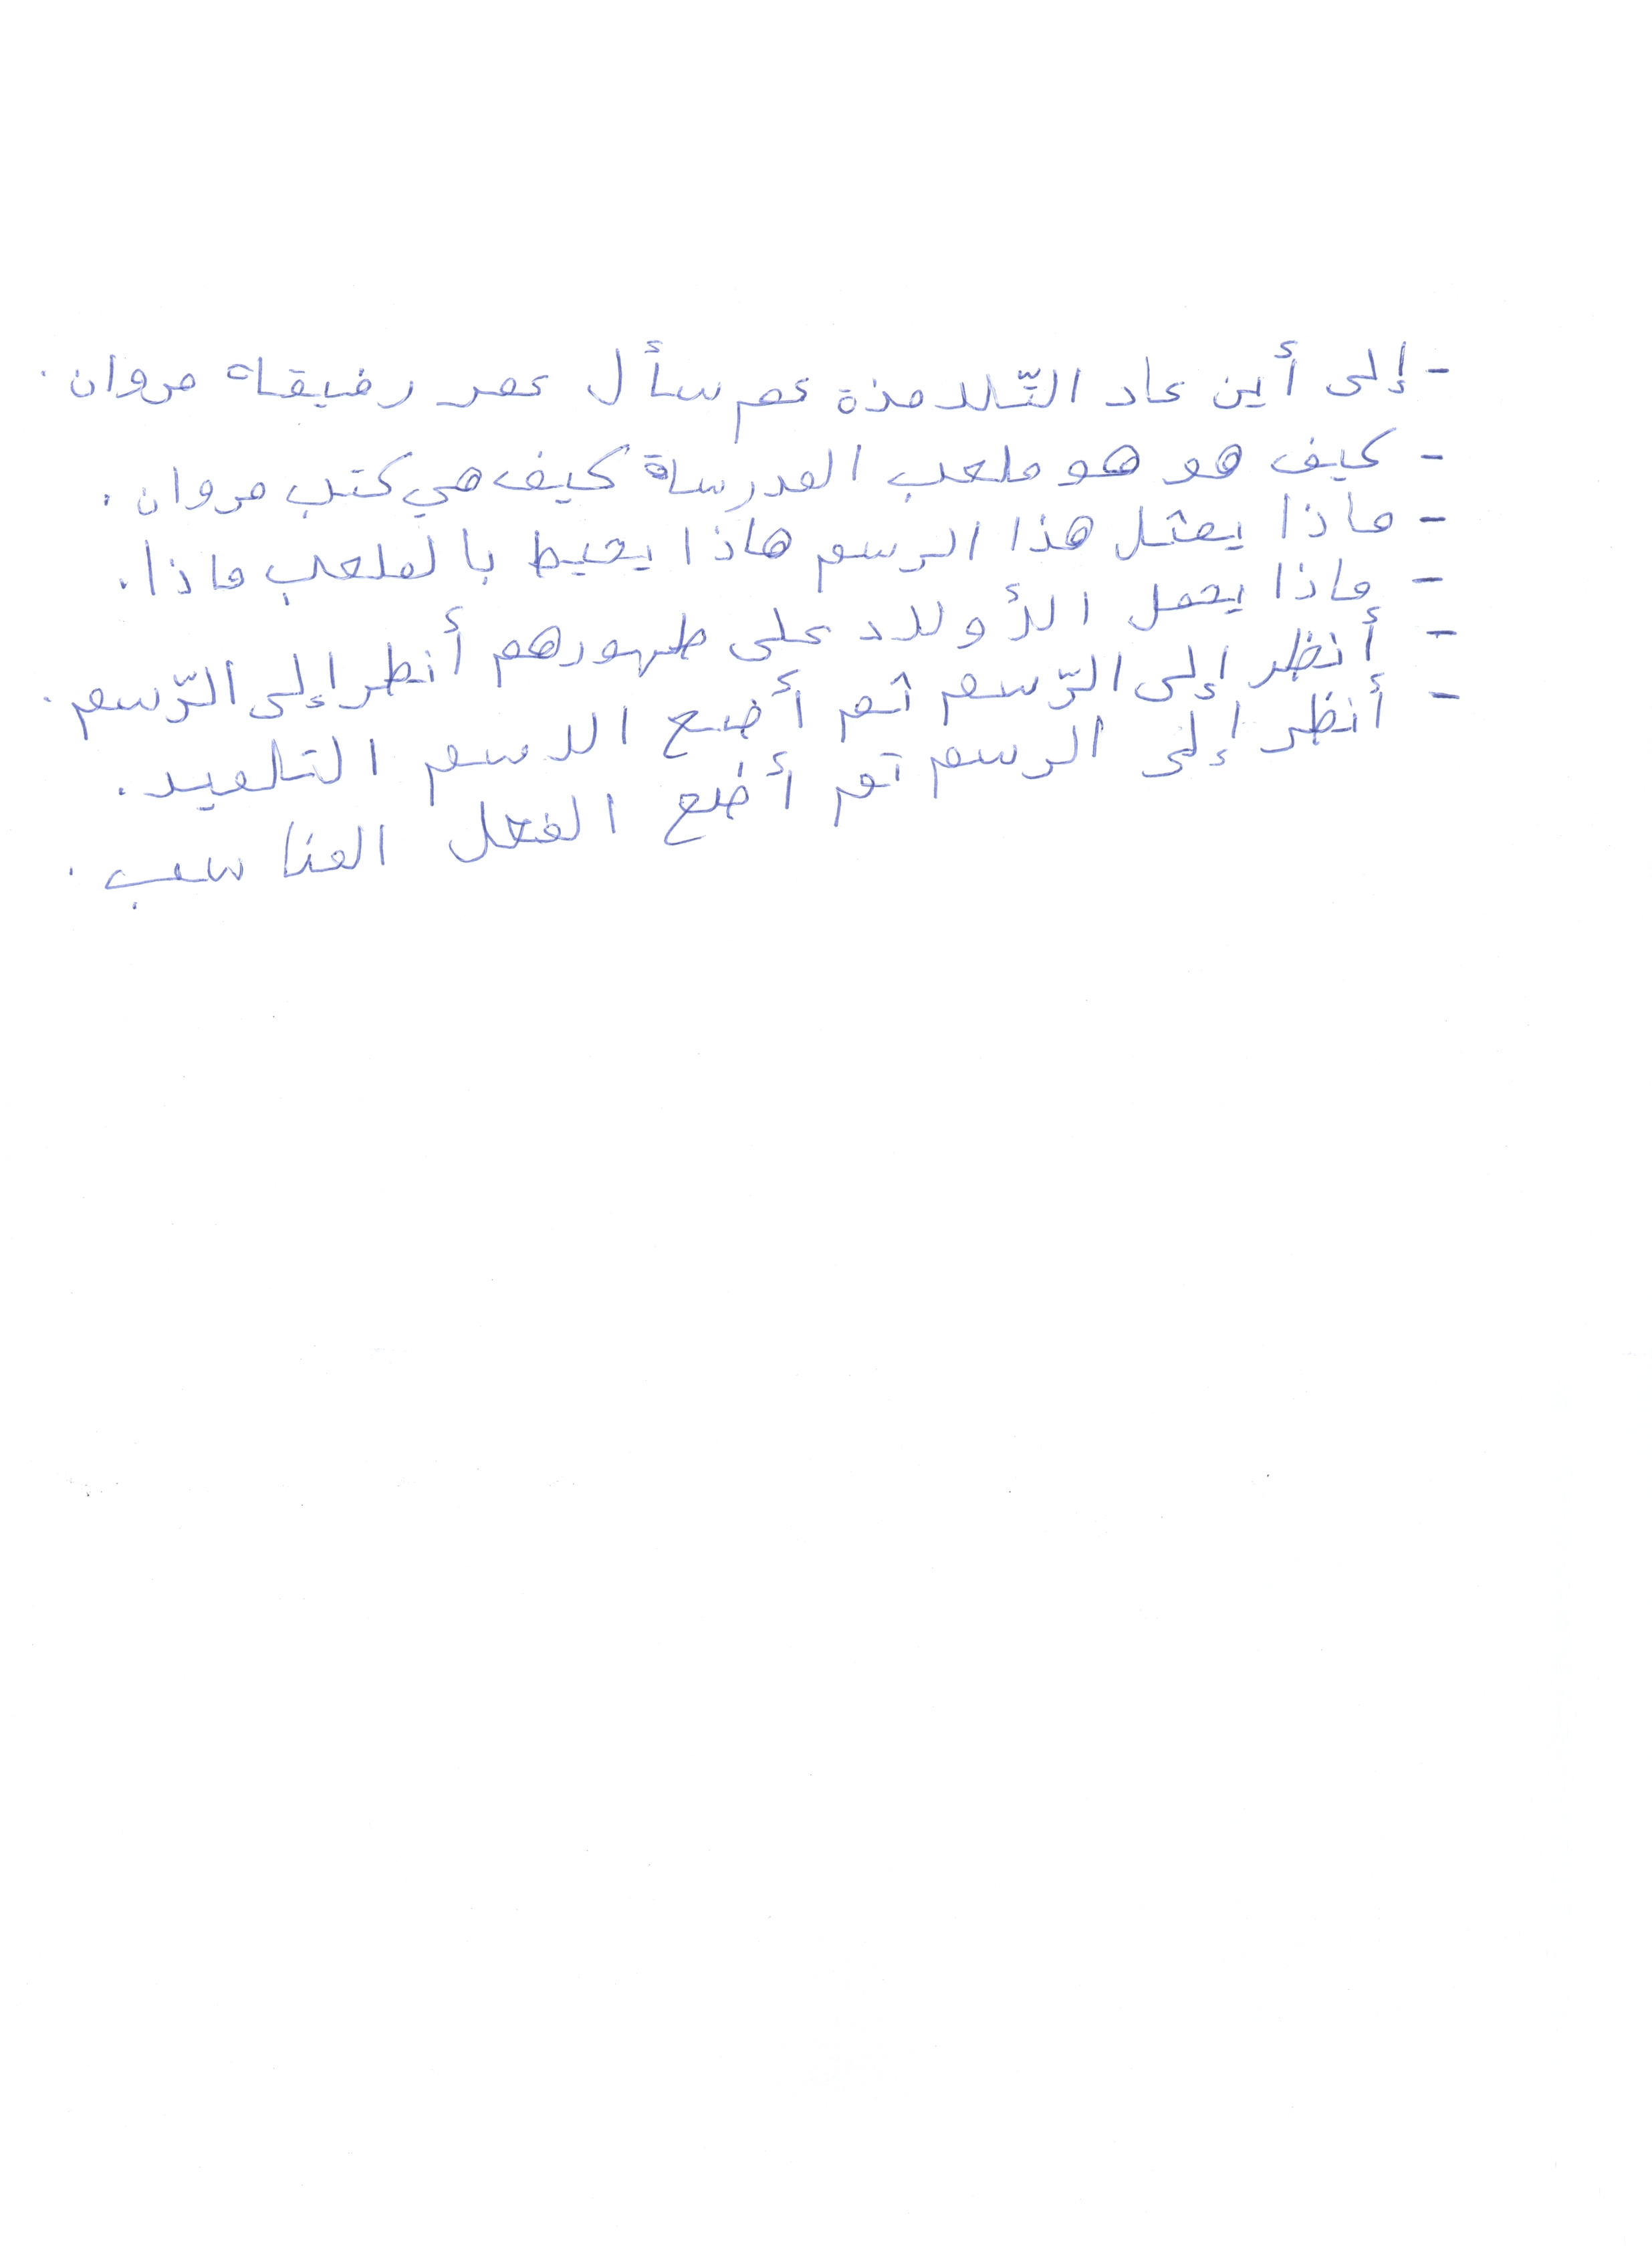 - إلى أين عاد التّلامذة عم سأل عمر رفيقاه مروان.
- كيف هو هو ملعب المدرساة كيف هي كتب مروان.
- ماذا يمثل هذا الرسم هاذا يحيط بالملعب ماذا.
- ماذا يحمل الأولاد على طهورهم أنطر إلى الرّسم.
- أنظر إلى الرّسم ثم أضع الاسم التلميد.
- أنظر إلى الرسم تم أضع الفعل المناسب.